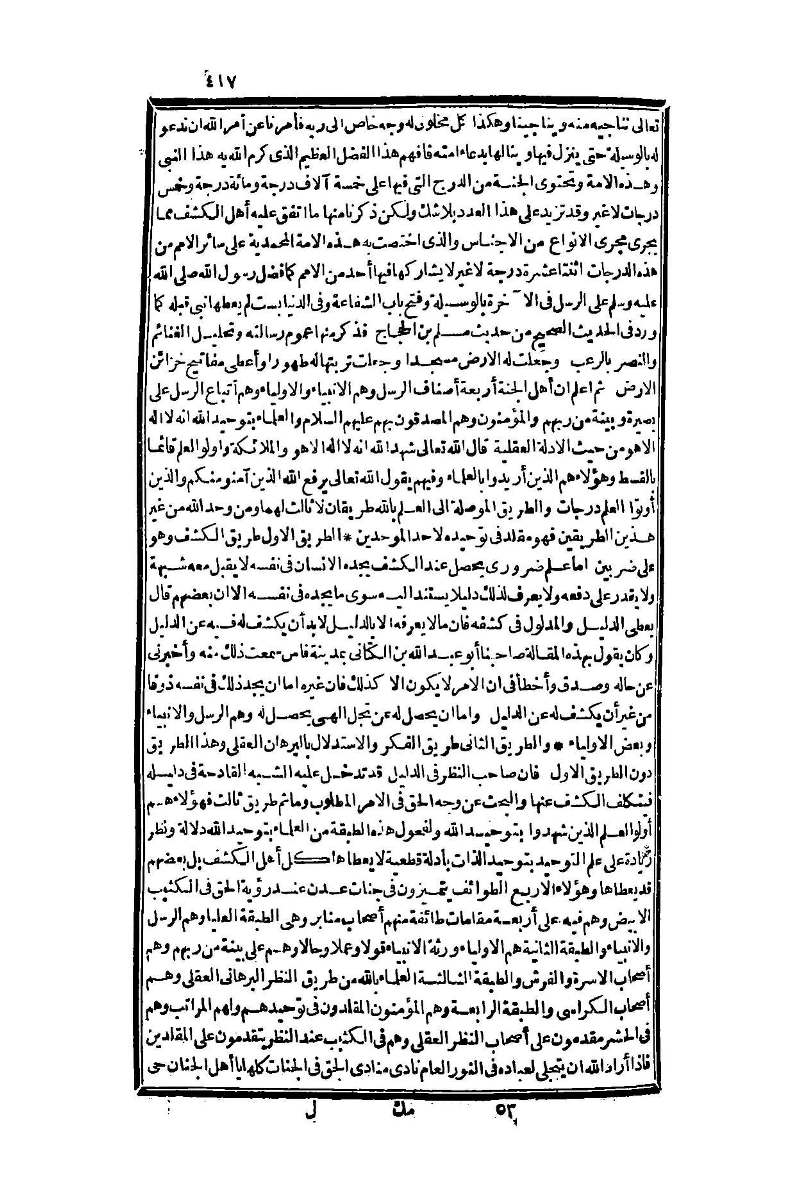 ٤١٧
تعالى نناجيه منه ويناجينا وهكذا كل مخلوق له وجه خاص الى ربه فأمرنا عن أمر الله ان ندعو
له بالوسيلة حتى ينزل فيها وينالها بدعاء امته فافهم هذا الفضل العظيم الذى كرم الله به هذا النبى
وهذه الامة وتحتوى الجنة من الدرج التى فيها على خمسة آلاف درجة ومائة درجة وخمس
درجات لا غير وقد تزيد على هذا العدد بلا شك ولكن ذكرنا منها ما اتفق عليه أهل الكشف مما
يجرى مجرى الانواع من الاجناس والذى اختصت به هذه الامة المحمدية على سائر الامم من
هذه الدرجات اثنتا عشرة درجة لا غير لا يشاركها فيها أحد من الامم كما فضل رسول الله صلى الله
عليه وسلم على الرسل فى الآخرة بالوسيلة وفتح باب الشفاعة وفى الدنيا بست لم يعطها نبى قبله كما
ورد فى الحديث الصحيح من حديث مسلم بن الحجاج فذكر منها عموم رسالته وتحليل الغنائم
والنصر بالرعب وجعلت له الارض مسجدا وجعلت تربتها له طهورا وأعطى مفاتيح خزائن
الارض ثم اعلم ان أهل الجنة أربعة أصناف الرسل وهم الانبياء والاولياء وهم أتباع الرسل على
بصيرة وبينة من ربهم والمؤمنون وهم المصدقون بهم عليهم السلام والعلماء بتوحيد الله انه لا اله
الا هو من حيث الادلة العقلية قال الله تعالى شهد الله انه لا اله الا هو والملائكة واولو العلم قائما
بالقسط وهؤلاء هم الذين أريدوا بالعلماء وفيهم يقول الله تعالى يرفع الله الذين آمنوا منكم والذين
أوتوا العلم درجات والطريق الموصلة الى العلم بالله طريقان لا ثالث لهما ومن وحد الله من غير
هذين الطريقين فهو مقلد فى توحيده لاحد الموحدين * الطريق الاول طريق الكشف وهو
على ضربين اما علم ضرورى يحصل عند الكشف يجده الانسان فى نفسه لا يقبل معه شبهة
ولا يقدر على دفعه ولا يعرف لذلك دليلا يستند اليه سوى ما يجده فى نفسه الا ان بعضهم قال
يعطى الدليل والمدلول فى كشفه فان ما لا يعرف الا بالدليل لا بد أن يكشف له فيه عن الدليل
وكان يقول بهذه المقالة صاحبنا أبو عبد الله بن الكتانى بمدينة فاس سمعت ذلك منه وأخبرنى
عن حاله وصدق وأخطأ فى ان الامر لا يكون الا كذلك فان غيره اما ان يجد ذلك فى نفسه ذوقا
من غير أن يكشف له عن الدليل واما ان يحصل له عن تجل الهى يحصل له وهم الرسل والانبياء
وبعض الاولياء * والطريق الثانى طريق الفكر والاستدلال بالبرهان العقلى وهذا الطريق
دون الطريق الاول فان صاحب النظر فى الدليل قد تدخل عليه الشبه القادحة فى دليله
فيتكلف الكشف عنها والبحث عن وجه الحق فى الامر المطلوب وما ثم طريق ثالث فهؤلاء هم
أولو العلم الذين شهدوا بتوحيد الله ولفحول هذه الطبقة من العلماء بتوحيد الله دلالة ونظر
زيادة على علم التوحيد بتوحيد الذات بأدلة قطعية لا يعطاها كل أهل الكشف بل بعضهم
قد يعطاها وهؤلاء الاربع الطوائف يتميزون فى جنات عدن عند رؤية الحق فى الكثيب
الابيض وهم فيه على أربعة مقامات طائفة منهم أصحاب منابر وهى الطبقة العليا وهم الرسل
والانبياء والطبقة الثانية هم الاولياء ورثة الانبياء قولا وعملا وحالا وهم على بينة من ربهم وهم
أصحاب الاسرة والفرش والطبقة الثالثة العلماء بالله من طريق النظر البرهانى العقلى وهم
أصحاب الكراسى والطبقة الرابعة وهم المؤمنون المقلدون فى توحيدهم ولهم المراتب وهم
فى الحشر مقدمون على أصحاب النظر العقلى وهم فى الكثيب عند النظر يتقدمون على المقلدين
فاذا أراد الله ان يتجلى لعباده فى الزور العام نادى منادى الحق فى الجنات كلها يا أهل الجنان حى
٥٣ مك ل